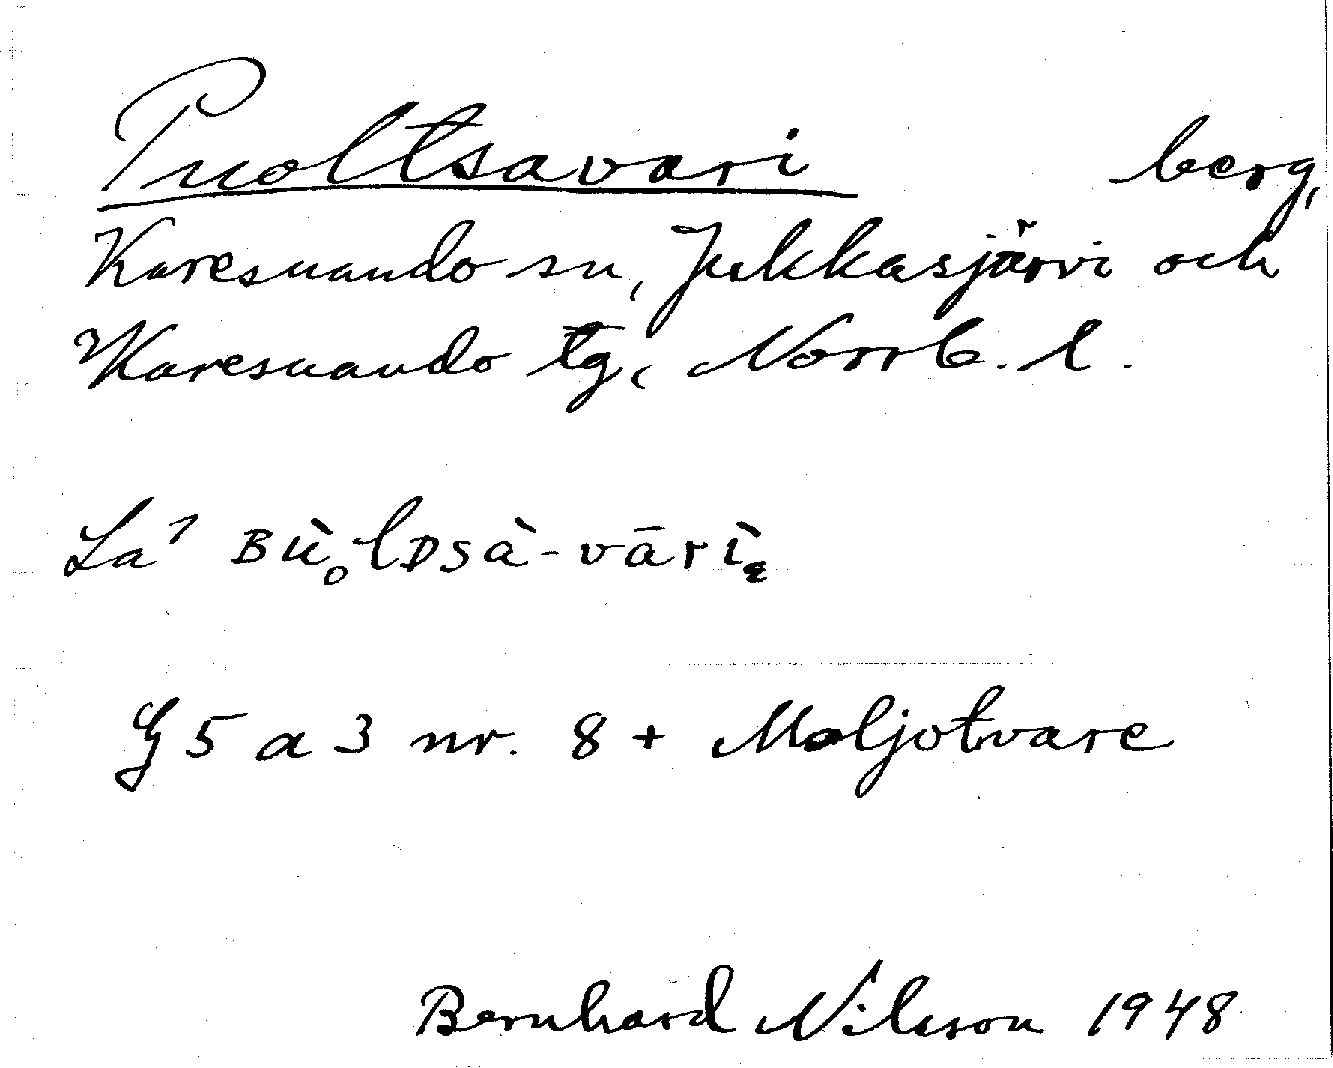 Puoltsavari berg,
Karesuando sn, Jukkasjärvi och
Karesuando tg, Norrb. l.
La¹ ʙù̥lᴅsà-vārį̀
G 5 a 3 nr. 8 + Moljotvare
Bernhard Nilsson 1948